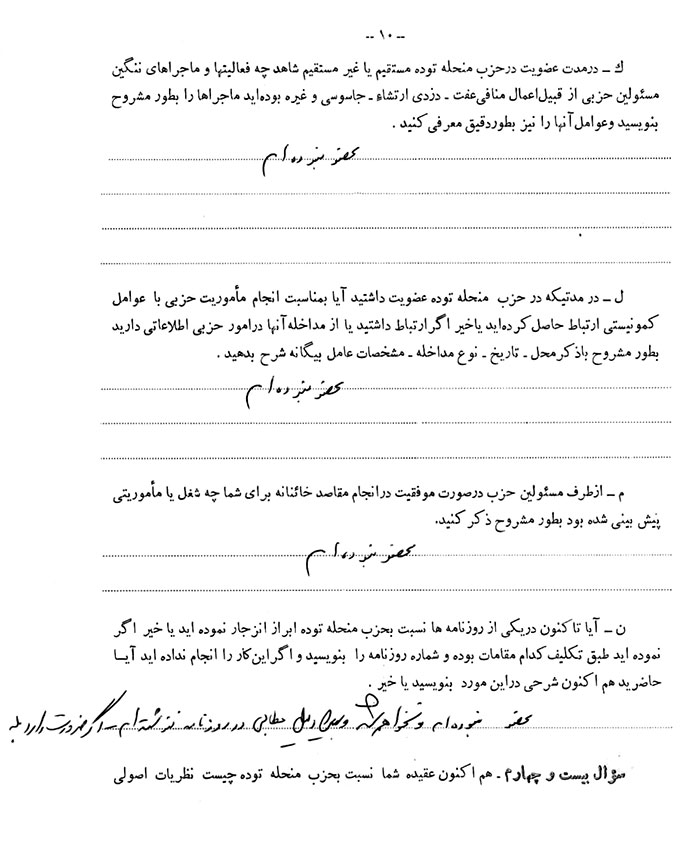 -- ۱۰ --
ك ــ درمدت عضویت درحزب منحله توده مستقیم یا غیر مستقیم شاهد چه فعالیتها و ماجراهای ننگین
مسئولین حزبی از قبیل اعمال منافی عفت ــ دزدی ارتشاء ــ جاسوسی و غیره بوده‌اید ماجراها را بطور مشروح
بنویسید وعوامل آنها را نیز بطوردقیق معرفی کنید .
عضو نبوده‌ام
ل ــ در مدتیکه در حزب منحله توده عضویت داشتید آیا بمناسبت انجام مأموریت حزبی با عوامل
کمونیستی ارتباط حاصل کرده‌اید یاخیر اگر ارتباط داشتید یا از مداخله آنها درامور حزبی اطلاعاتی دارید
بطور مشروح باذکر محل ــ تاریخ ــ نوع مداخله ــ مشخصات عامل بیگانه شرح بدهید .
عضو نبوده‌ام
م ــ ازطرف مسئولین حزب درصورت موفقیت درانجام مقاصد خائنانه برای شما چه شغل یا مأموریتی
پیش بینی شده بود بطور مشروح ذکر کنید.
عضو نبوده‌ام
ن ــ آیا تاکنون دریکی از روزنامه ها نسبت بحزب منحله توده ابراز انزجار نموده اید یا خیر اگر
نموده اید طبق تکلیف کدام مقامات بوده و شماره روزنامه را بنویسید و اگر این کار را انجام نداده اید آیا
حاضرید هم اکنون شرحی دراین مورد بنویسید یا خیر .
عضو نبوده‌ام و نخواهم شد و بهمین دلیل مطالبی در روزنامه ننوشته‌ام ــ اگر ضرورت دارد بله
سؤال بیست و چهارم ــ هم اکنون عقیده شما نسبت بحزب منحله توده چیست نظریات اصولی